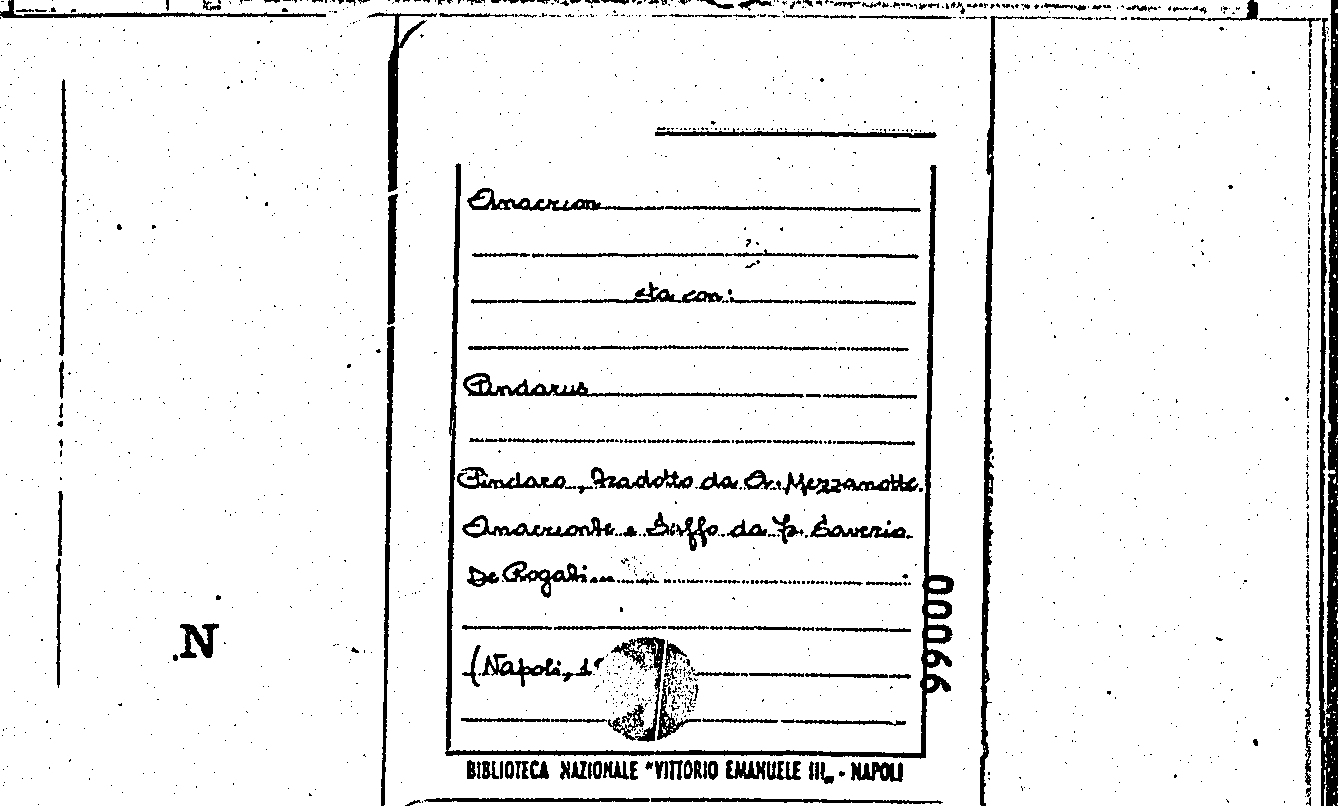 Anacreon
eta con:
Pindarus
Pindaro, tradotto da A. Mezzanotte.
Anacreonte e Saffo da F. Saverio
De Rogati...
(Napoli, 1
BIBLIOTECA NAZIONALE "VITTORIO EMANUELE III„ - NAPOLI
00066
N